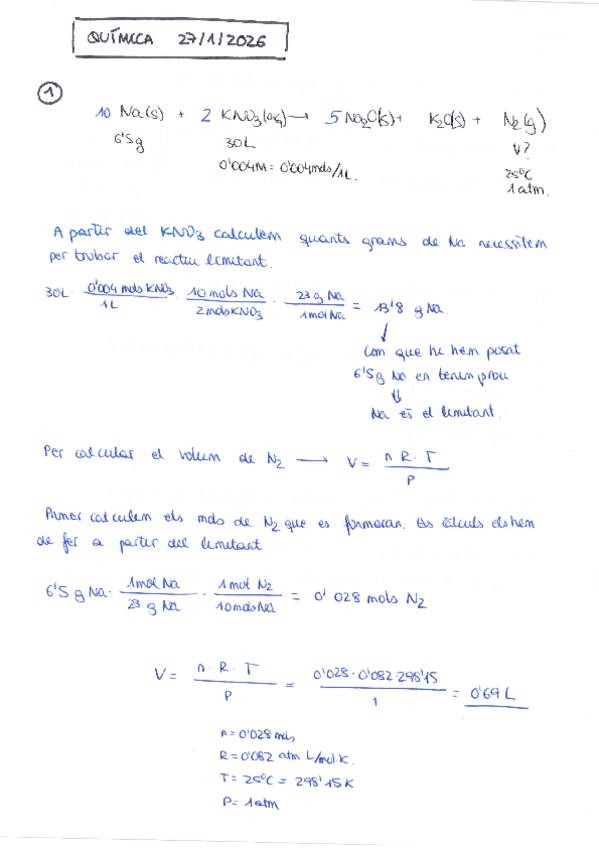 QUÍMICA 27/1/2026
1
10 Na(s) + 2 KNO3(aq) → 5 Na2O(s) + K2O(s) + N2(g)
6'5g 30L V?
0'004M = 0'004mols/1L. 25ºC
1 atm.
A partir del KNO3 calculem quants grams de Na necessitem
per trobar el reactiu limitant.
30L · 0'004 mols KNO3 / 1L · 10 mols Na / 2 mols KNO3 · 23 g Na / 1 mol Na = 13'8 g Na.
Com que hi hem posat
6'5g No en tenim prou
⇓
Na és el limitant.
Per calcular el volum de N2 → V = n R. T / P
Primer calculem els mols de N2 que es formaran. Els càlculs els hem
de fer a partir del limitant
6'5 g Na · 1 mol Na / 23 g Na · 1 mol N2 / 10 mols Na = 0'028 mols N2
V = n. R. T / P = 0'028 · 0'082 · 298'15 / 1 = 0'69 L
n = 0'028 mols
R = 0'082 atm L/mol K.
T = 25ºC = 298'15 K
P = 1 atm